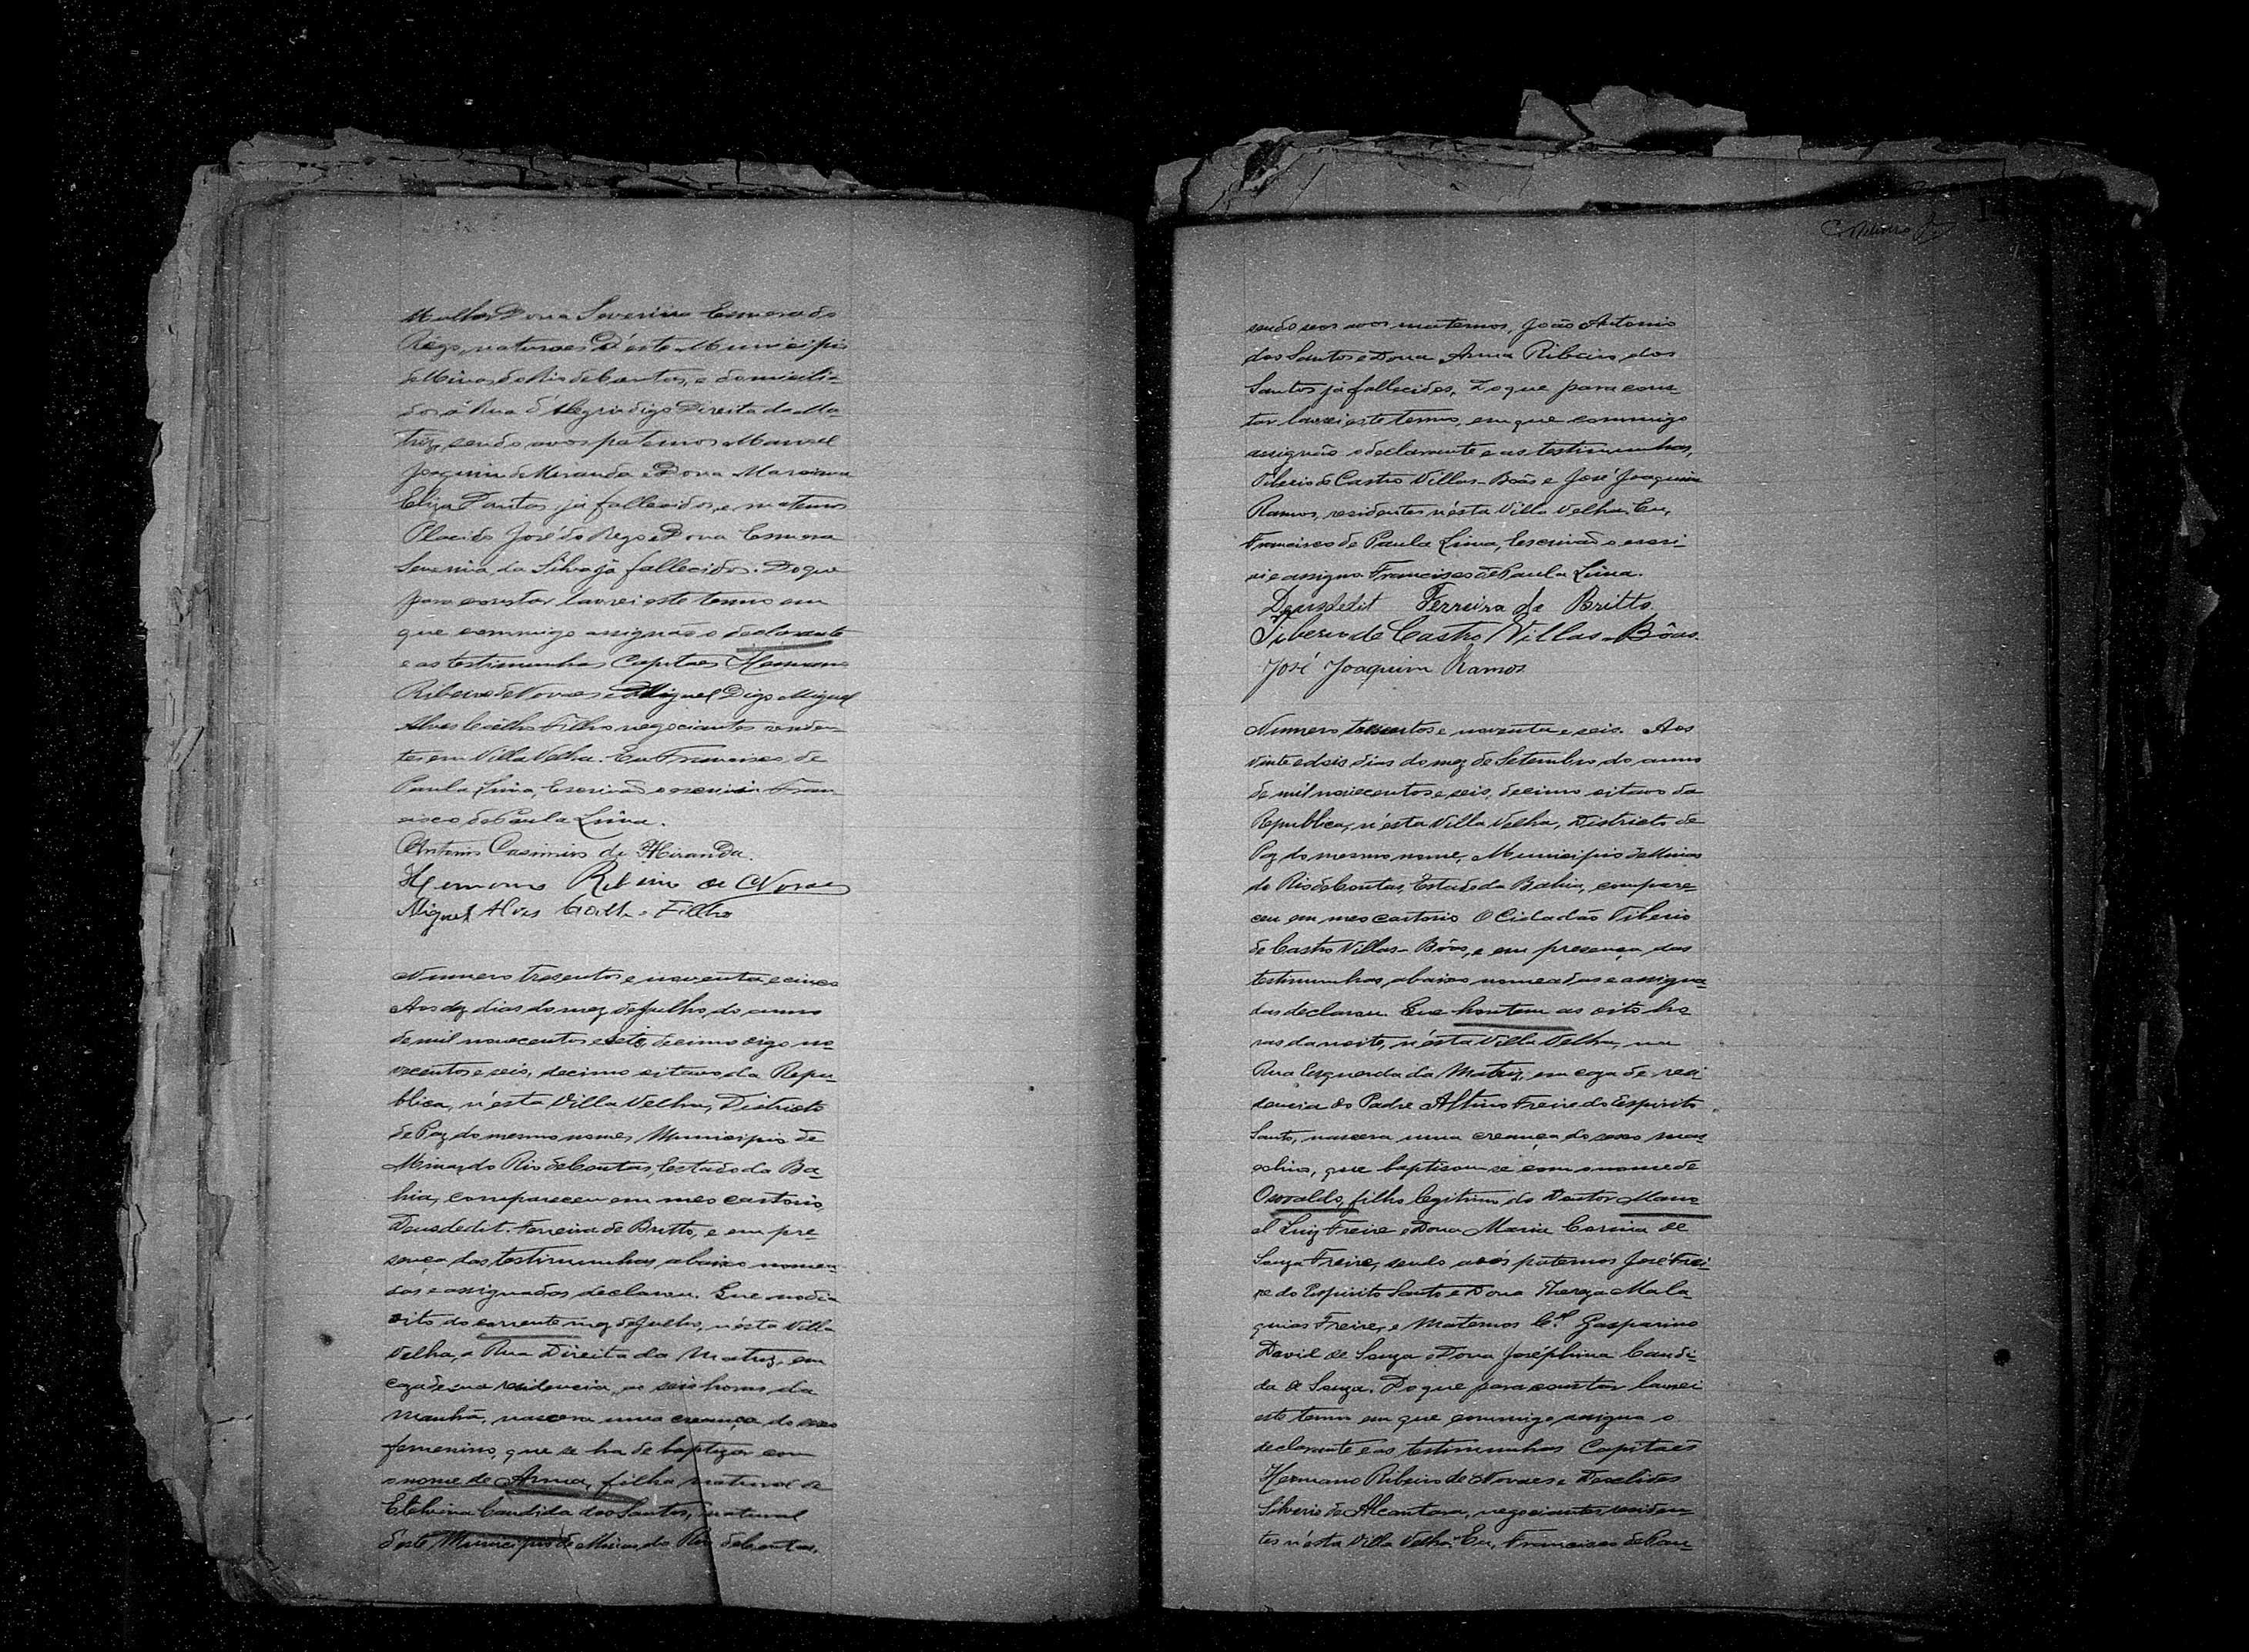 Mulher Dona Severina Esmera do
Rego, naturaes d'este Municipio
de Minas do Rio de Contas, e domicilia-
dos á Rua d'Alegria digo Direita da Ma-
triz, sendo avos paternos Manoel
Joaquim de Miranda e Dona Marianna
Eliza Dantas já fallecidos, e maternos
Placido José do Rego e Dona Esmera
Severina da Silva já fallecidos. Do que
para constar lavrei este termo em
que commigo assignão o declarante
e as testimunhas Capitães Hermano
Ribeiro de Novaes e Miguel Digo Miguel
Alves Coêlho Filho negociantes residen-
tes em Villa Velha. Eu Francisco de
Paula Lima, Escrivão o escrivi Fran-
cisco de Paula Lima.
Antonio Casimiro de Miranda.
Hermano Ribeiro de Novaes
Miguel Alves Coelho Filho
Numero tresentos e noventa e cinco
Aos dez dias do mez de Julho do anno
de mil novecentos e sete, decimo digo no-
vecentos e seis, decimo oitavo da Repu-
blica, n'esta Villa Velha, Districto
de Paz do mesmo nome, Municipio de
Minas do Rio de Contas, Estado da Ba-
hia, compareceu em meo cartorio
Deusdedit Ferreira de Britto, e em pre-
sença das testimunhas abaixo nomea-
das e assignadas declarou. Que no dia
oito do corrente mez de Julho, n'ésta Villa
Velha, a Rua Direita da Matriz, em
caza de sua residencia, as seis horas da
manhã, nascera uma creança do sexo
femenino, que se ha de baptizar com
o nome de Anna, filha natural de
Etelvina Candida dos Santos, natural
d'este Municipio de Minas do Rio de Contas,
sendo seos avos maternos, João Antonio
dos Santos e Dona Anna Ribeiro dos
Santos já fallecidos, Do que para cons-
tar lavrei este termo, em que commigo
assignão o declarante e as testimunhas,
Tiberio de Castro Villas-Bôas e José Joaquim
Ramos, residentes n'ésta Villa Velha. Eu,
Francisco de Paula Lima, Escrivão o escri-
vi e assigno Francisco de Paula Lima.
Deusdedit Ferreira de Britto.
Tiberio de Castro Villas-Bôas.
José Joaquim Ramos
Numero tresentos e noventa e seis. Aos
vinte e dois dias do mez de Setembro do anno
de mil novecentos e seis, decimo oitavo da
Republica, n'esta Villa Velha, Districto de
Paz do mesmo nome, Municipio de Minas
do Rio de Contas, Estado da Bahia, compare-
ceu em meo cartorio O Cidadão Tiberio
de Castro Villas-Bôas, e em presença das
testimunhas abaixo nomeadas e assigna-
das declarou. Que hontem as oito ho-
ras da noite, n'ésta Villa Velha, na
Rua Esquerda da Matriz, em caza de resi-
dencia do Padre Altino Freire do Espirito
Santo, nascera uma creança do sexo mas-
culino, que baptisou-se com o nome de
Oswaldo, filho legitimo do Doutor Mano-
el Luiz Freire e Dona Maria Corina de
Souza Freire, sendo avós paternos José Frei-
re do Espirito Santo e Dona Thereza Mala-
quias Freire, e Maternos C.el Gasparino
David de Souza e Dona Joséphina Candi-
da de Souza. Do que para constar lavrei
este termo em que commigo assigna o
declarante e as testimunhas Capitães
Hermano Ribeiro de Novaes e Deoclides
Silverio de Alcantara, negociantes residen-
tes n'ésta Villa Velha. Eu, Francisco de Pau-